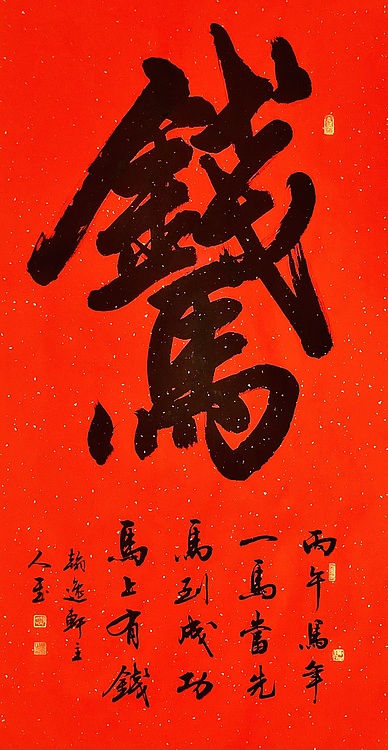 錢
馬
丙午馬年
一馬當先
馬到成功
馬上有錢
翰逸軒主
人